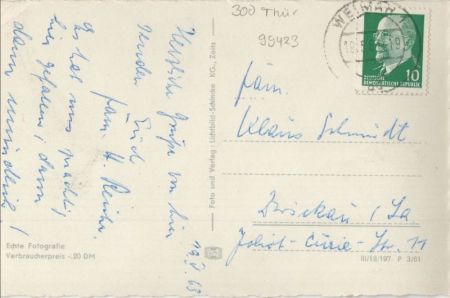 300 Thür
99423
WEIMAR 1
DEUTSCHE
DEMOKRATISCHE REPUBLIK
10
Herzliche Grüße von hier
senden Euch
Fam. H.
Es hat uns
hier gefallen, dann
dann mündlich!
19. 63
Fam.
Klaus Schmidt
Zwickau / Sa
Joliot-Curie-Str. 11
Foto und Verlag: Lichtbild-Schincke KG., Zeitz
Echte Fotografie
Verbraucherpreis -.20 DM
III/18/197. P 3/61